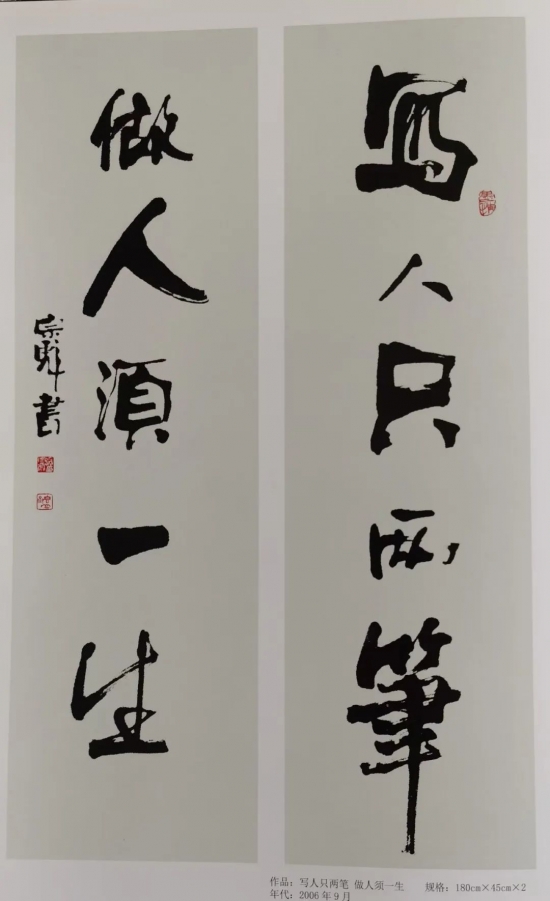 寫人只兩筆
做人須一生
書
作品：写人只两笔 做人须一生 规格：180cm×45cm×2
年代：2006年9月